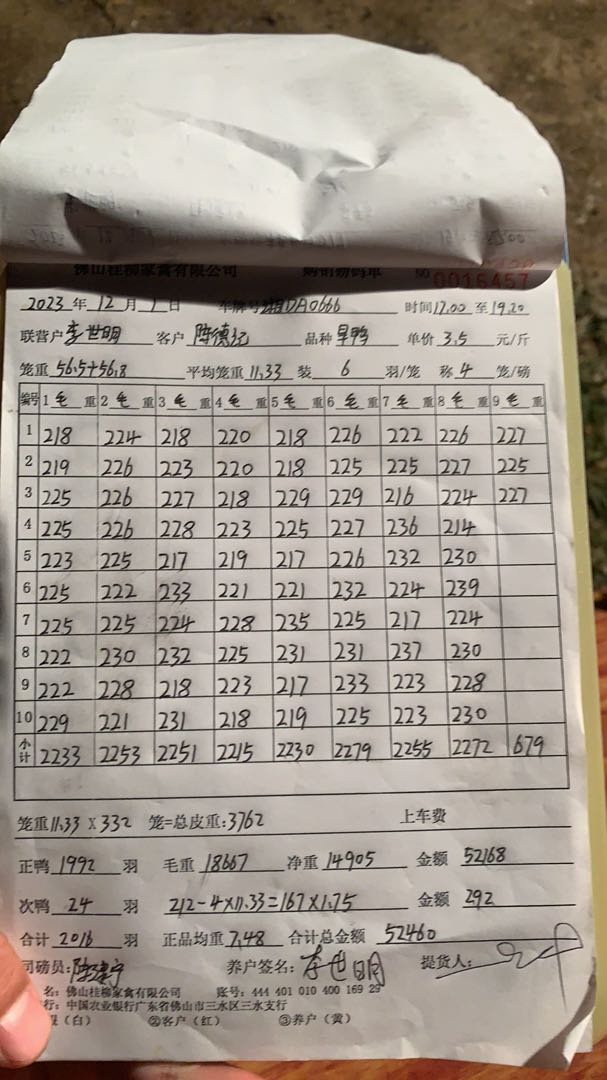 佛山桂柳家禽有限公司 购销磅码单 NO 0016457
2023 年 12 月 1 日 车牌号 湘DA0666 时间 17.00 至 19.20
联营户 李世明 客户 陈德 品种 旱鸭 单价 3.5 元/斤
笼重 56.5+56.8 平均笼重 11.33 装 6 羽/笼 称 4 笼/磅
编号 1 毛 重 2 毛 重 3 毛 重 4 毛 重 5 毛 重 6 毛 重 7 毛 重 8 毛 重 9 毛 重
1 218 224 218 220 218 226 222 226 227
2 219 226 223 220 218 225 225 227 225
3 225 226 227 218 229 229 216 224 227
4 225 226 228 223 225 227 236 214
5 223 225 217 219 217 226 232 230
6 225 222 233 221 221 232 224 239
7 225 225 224 228 235 225 217 224
8 222 230 232 225 231 231 237 230
9 222 228 218 223 217 233 223 228
10 229 221 231 218 219 225 223 230
小计 2233 2253 2251 2215 2230 2279 2255 2272 679
笼重 11.33 X 332 笼=总皮重:3762 上车费
正鸭 1992 羽 毛重 18667 净重 14905 金额 52168
次鸭 24 羽 212-4X11.33=167X1.75 金额 292
合计 2016 羽 正品均重 7.48 合计总金额 52460
司磅员: 养户签名: 李世明 提货人:
名: 佛山桂柳家禽有限公司 账号: 444 401 010 400 169 29
行: 中国农业银行广东省佛山市三水区三水支行
(白) ②客户(红) ③养户(黄)